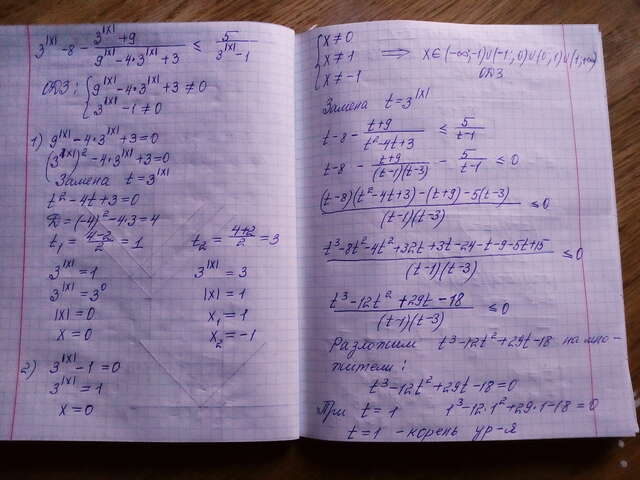 3^|x| - 8 - (3^|x| + 9)/(9^|x| - 4·3^|x| + 3) ≤ 5/(3^|x| - 1)
ОДЗ: { 9^|x| - 4·3^|x| + 3 ≠ 0
3^|x| - 1 ≠ 0
1) 9^|x| - 4·3^|x| + 3 = 0
(3^|x|)² - 4·3^|x| + 3 = 0
Замена t = 3^|x|
t² - 4t + 3 = 0
D = (-4)² - 4·3 = 4
t₁ = (4-2)/2 = 1 t₂ = (4+2)/2 = 3
3^|x| = 1 3^|x| = 3
3^|x| = 3⁰ |x| = 1
|x| = 0 x₁ = 1
x = 0 x₂ = -1
2) 3^|x| - 1 = 0
3^|x| = 1
x = 0
{ x ≠ 0
x ≠ 1 ⟹ x ∈ (-∞; -1) ∪ (-1; 0) ∪ (0; 1) ∪ (1; +∞)
x ≠ -1 ОДЗ
Замена t = 3^|x|
t - 8 - (t+9)/(t² - 4t + 3) ≤ 5/(t-1)
t - 8 - (t+9)/((t-1)(t-3)) - 5/(t-1) ≤ 0
((t-8)(t² - 4t + 3) - (t+9) - 5(t-3))/((t-1)(t-3)) ≤ 0
(t³ - 8t² - 4t² + 32t + 3t - 24 - t - 9 - 5t + 15)/((t-1)(t-3)) ≤ 0
(t³ - 12t² + 29t - 18)/((t-1)(t-3)) ≤ 0
Разложим t³ - 12t² + 29t - 18 на мно-
жители:
t³ - 12t² + 29t - 18 = 0
При t = 1 1³ - 12·1² + 29·1 - 18 = 0
t = 1 - корень ур-я